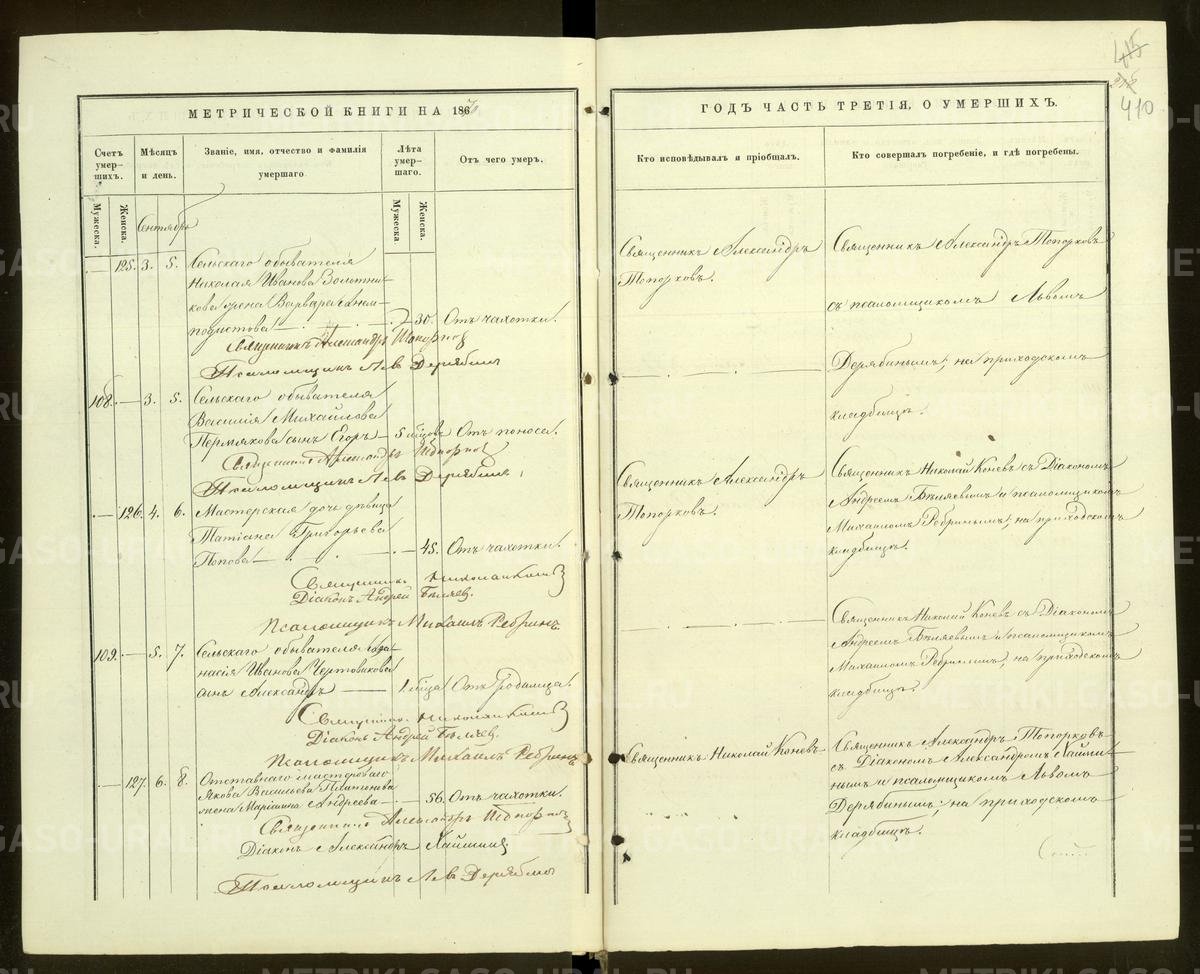 415
410
МЕТРИЧЕСКОЙ КНИГИ НА 1876
ГОДЪ ЧАСТЬ ТРЕТІЯ, О УМЕРШИХЪ.
Счетъ умер-шихъ.
Мѣсяцъ и день.
Званіе, имя, отчество и фамилія умершаго
Лѣта умер-шаго.
Отъ чего умеръ.
Мужеска.
Женска.
Мужеска.
Женска.
Кто исповѣдывалъ и пріобщалъ.
Кто совершалъ погребеніе, и гдѣ погребены.
Сентябрь
125. 3. 5. Сельскаго обывателя
Николая Иванова Золотни-
кова жена Варвара
30. Отъ чахотки.
Священникъ Александръ Топорковъ
Псаломщикъ Левъ Дерябинъ
Священникъ Александръ
Топорковъ.
Священникъ Александръ Топорковъ
съ псаломщикомъ Львомъ
Дерябинымъ; на приходскомъ
кладбищѣ.
108. — 3. 5. Сельскаго обывателя
Василія Михайлова
Пермякова сынъ Егоръ — 5 мѣсцовъ Отъ поноса.
Священникъ Александръ Топорковъ
Псаломщикъ Левъ Дерябинъ.
Священникъ Николай Коневъ съ Діакономъ
Андреемъ Бѣляевымъ и псаломщикомъ
Михаиломъ Ребринымъ; на приходскомъ
кладбищѣ.
— 126. 4. 6. Мастерская дочь дѣвица
Татіана Григорьева
Попова — 45. Отъ чахотки.
Священникъ Николай Коневъ
Діаконъ Андрей Бѣляев.
Псаломщикъ Михаилъ Ребринъ.
Священникъ Александръ
Топорковъ.
Священникъ Николай Коневъ съ Діакономъ
Андреемъ Бѣляевымъ и псаломщикомъ
Михаиломъ Ребринымъ; на приходскомъ
кладбищѣ.
109. — 5. 7. Сельскаго обывателя Афа-
насія Иванова Чертовикова
сынъ Александръ — 1 мѣсца Отъ родимца.
Священникъ Николай Коневъ
Діаконъ Андрей Бѣляев.
Псаломщикъ Михаилъ Ребринъ
— 127. 6. 8. Отставнаго мастероваго
Якова Васильева Платонова
жена Маріамна Андреева — 56. Отъ чахотки.
Священникъ Александръ Топорковъ
Діаконъ Александръ Хайминъ
Псаломщикъ Левъ Дерябинъ
Священникъ Николай Коневъ
Священникъ Александръ Топорковъ
съ Діакономъ Александромъ Хайми-
нымъ и псаломщикомъ Львомъ
Дерябинымъ; на приходскомъ
кладбищѣ.
METRIKI.GASO-URAL.RU